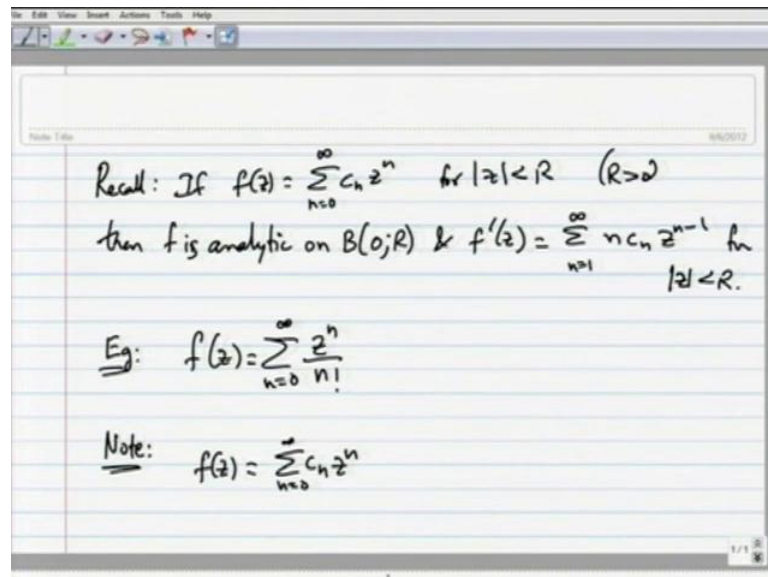 File Edit View Insert Actions Tools Help
Note Title
9/6/2012
Recall: If f(z) = ∑_{n=0}^{∞} c_n z^n for |z| < R (R>0)
then f is analytic on B(0;R) & f'(z) = ∑_{n=1}^{∞} n c_n z^{n-1} for
|z| < R.
Eg: f(z) = ∑_{n=0}^{∞} z^n / n!
Note: f(z) = ∑_{n=0}^{∞} c_n z^n
1/1